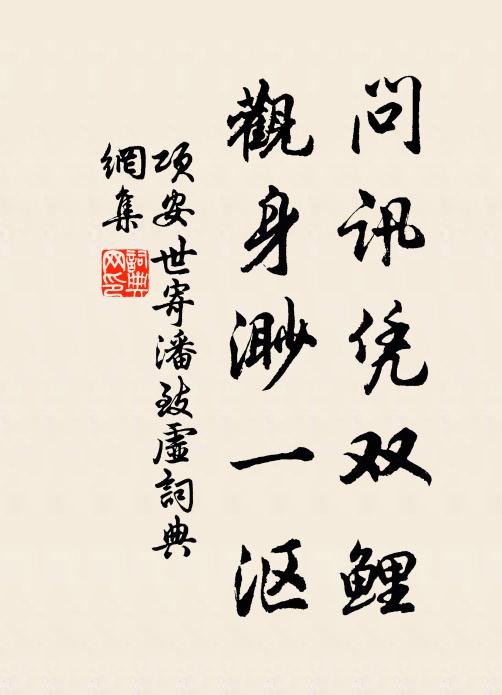 问讯凭双鲤
觀身渺一沤
项安世寄潘致虚詞典
網集
詞典网印